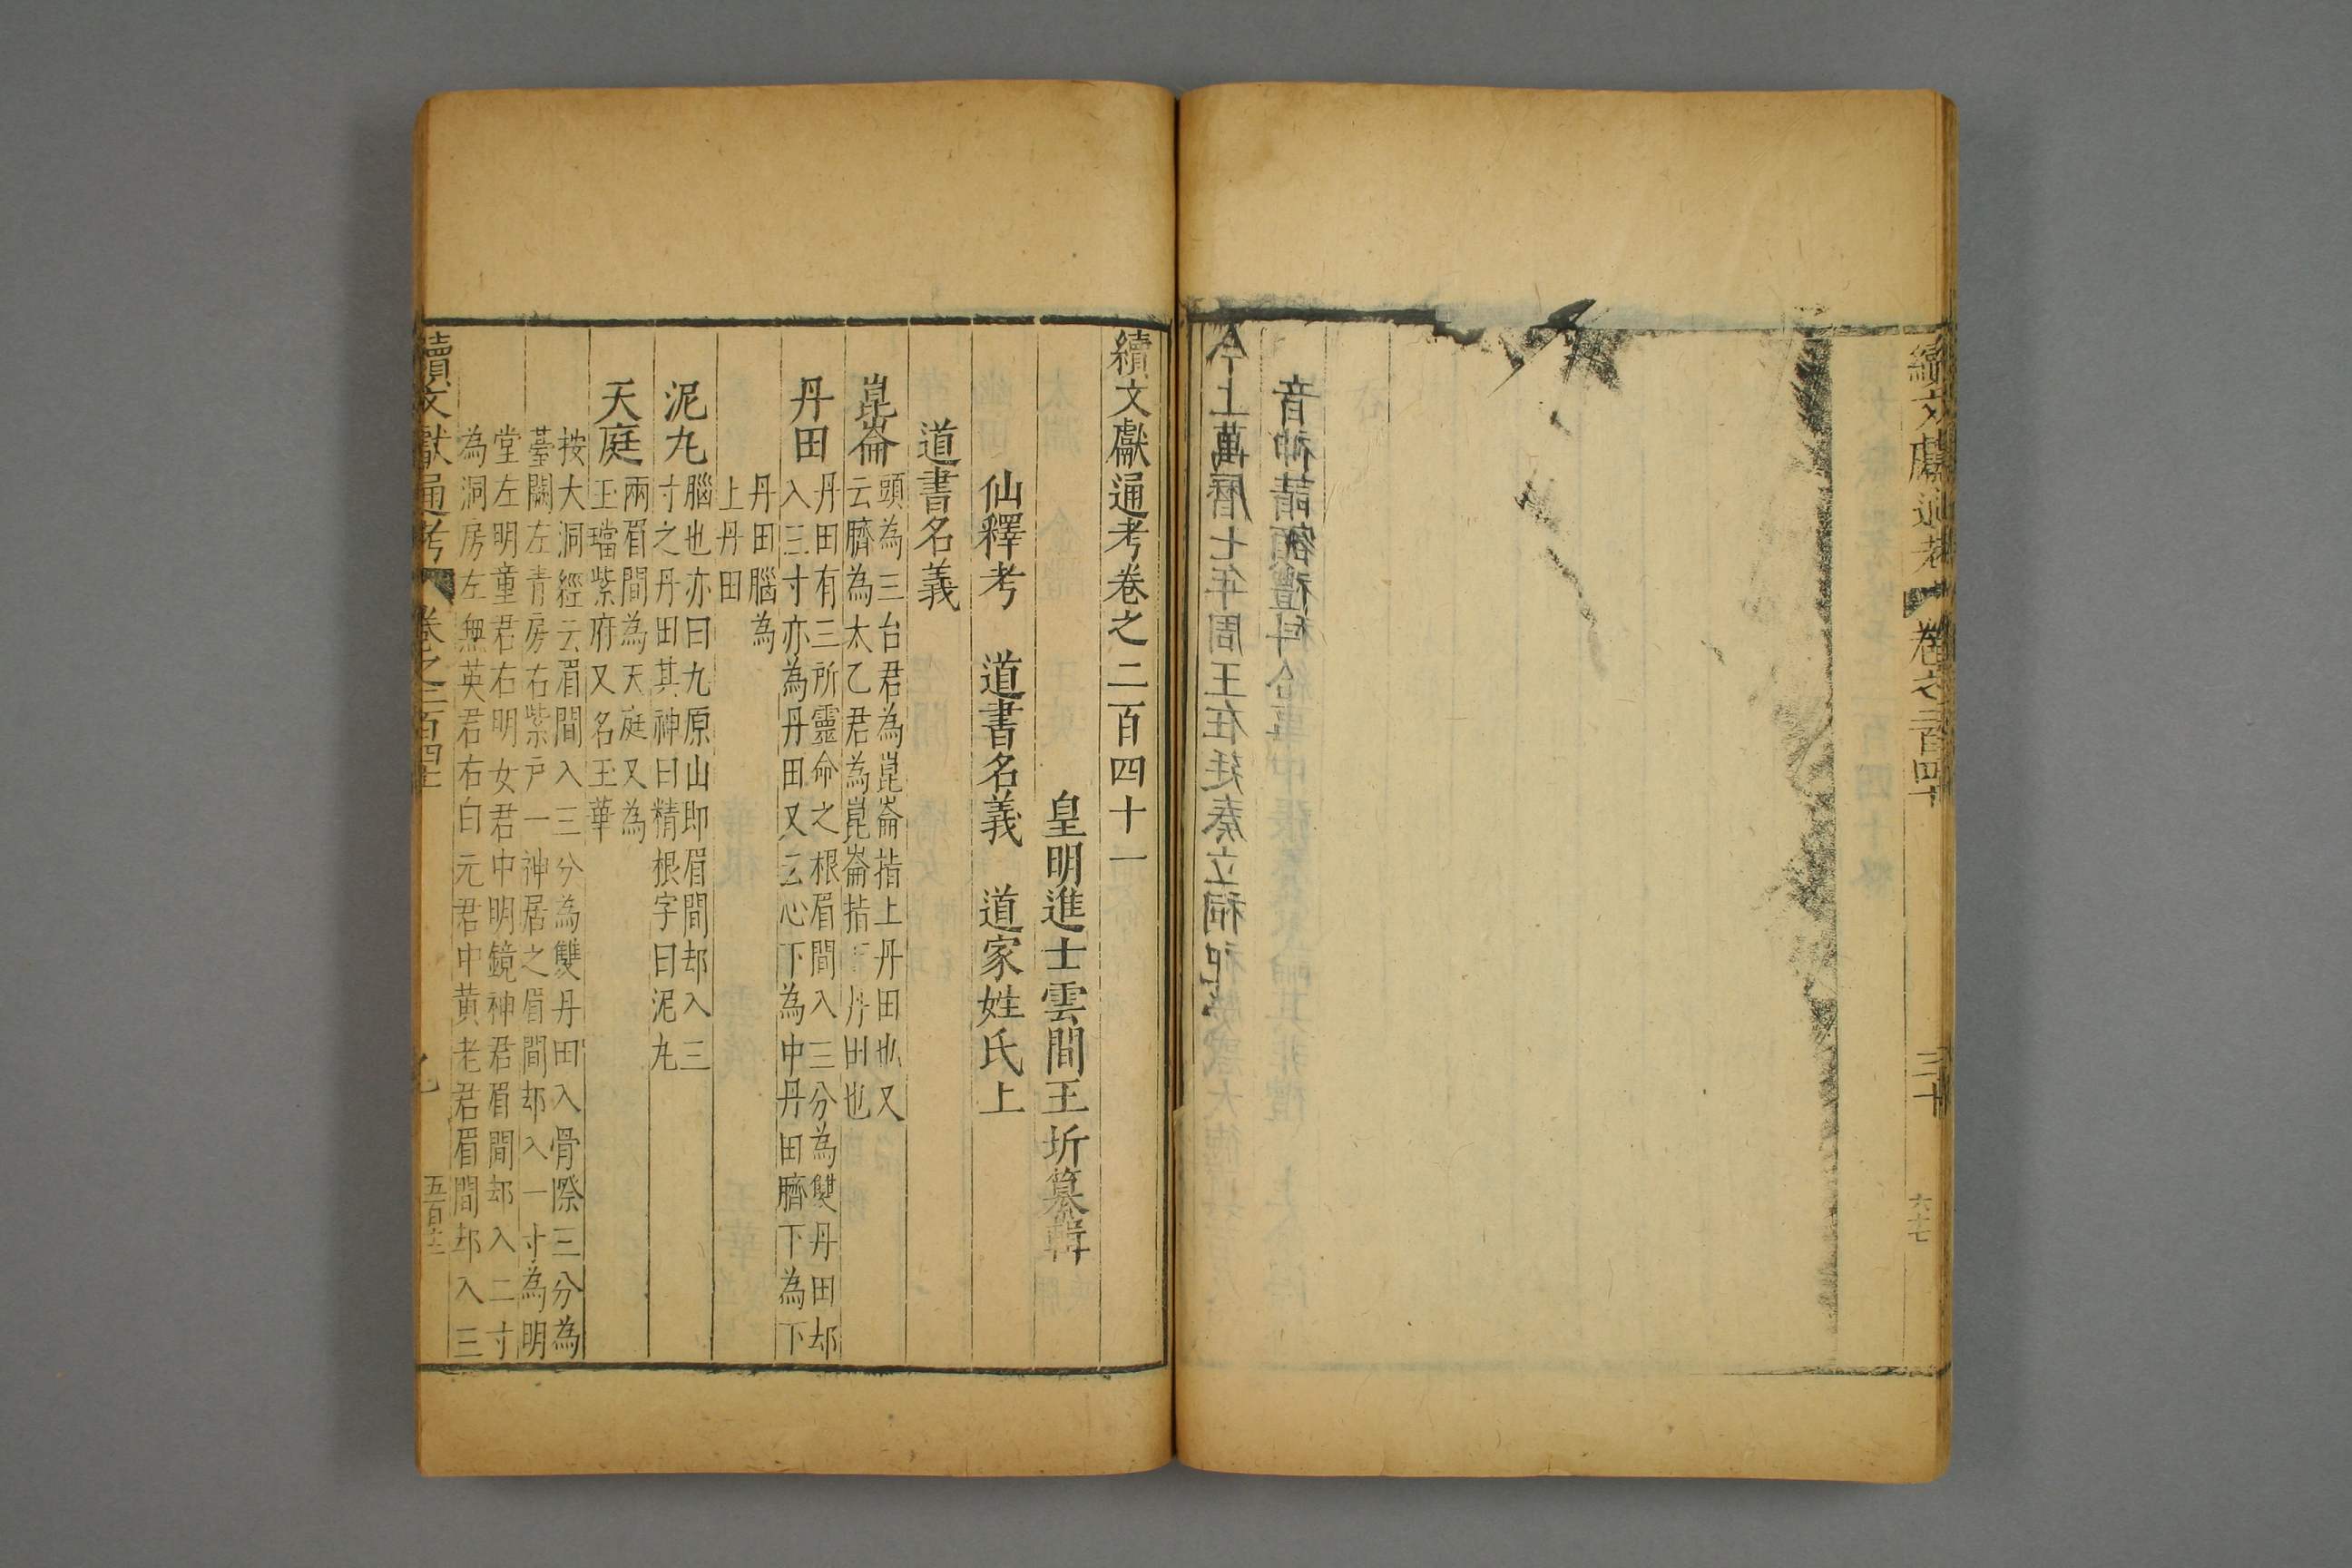 續文獻通考
卷之二百四十
三十
六十七
續文獻通考卷之二百四十一
皇明進士雲間王圻纂輯
仙釋考　道書名義　道家姓氏上
道書名義
崑崙
頭為三台君為崑崙指上丹田也又
云臍為太乙君為崑崙指下丹田也
丹田
丹田有三所靈命之根眉間入三分為雙丹田却
入三寸亦為丹田又云心下為中丹田臍下為下
丹田腦為
上丹田
泥丸
腦也亦曰九原山即眉間却入三
寸之丹田其神曰精根字曰泥丸
天庭
兩眉間為天庭又為
玉璫紫府又名玉華
按大洞經云眉間入三分為雙丹田入骨際三分為
薹闕左青房右紫戶一神居之眉間却入一寸為明
堂左明童君右明女君中明鏡神君眉間却入二寸
為洞房左無英君右白元君中黃老君眉間却入三
續文獻通考
卷之二百四十一